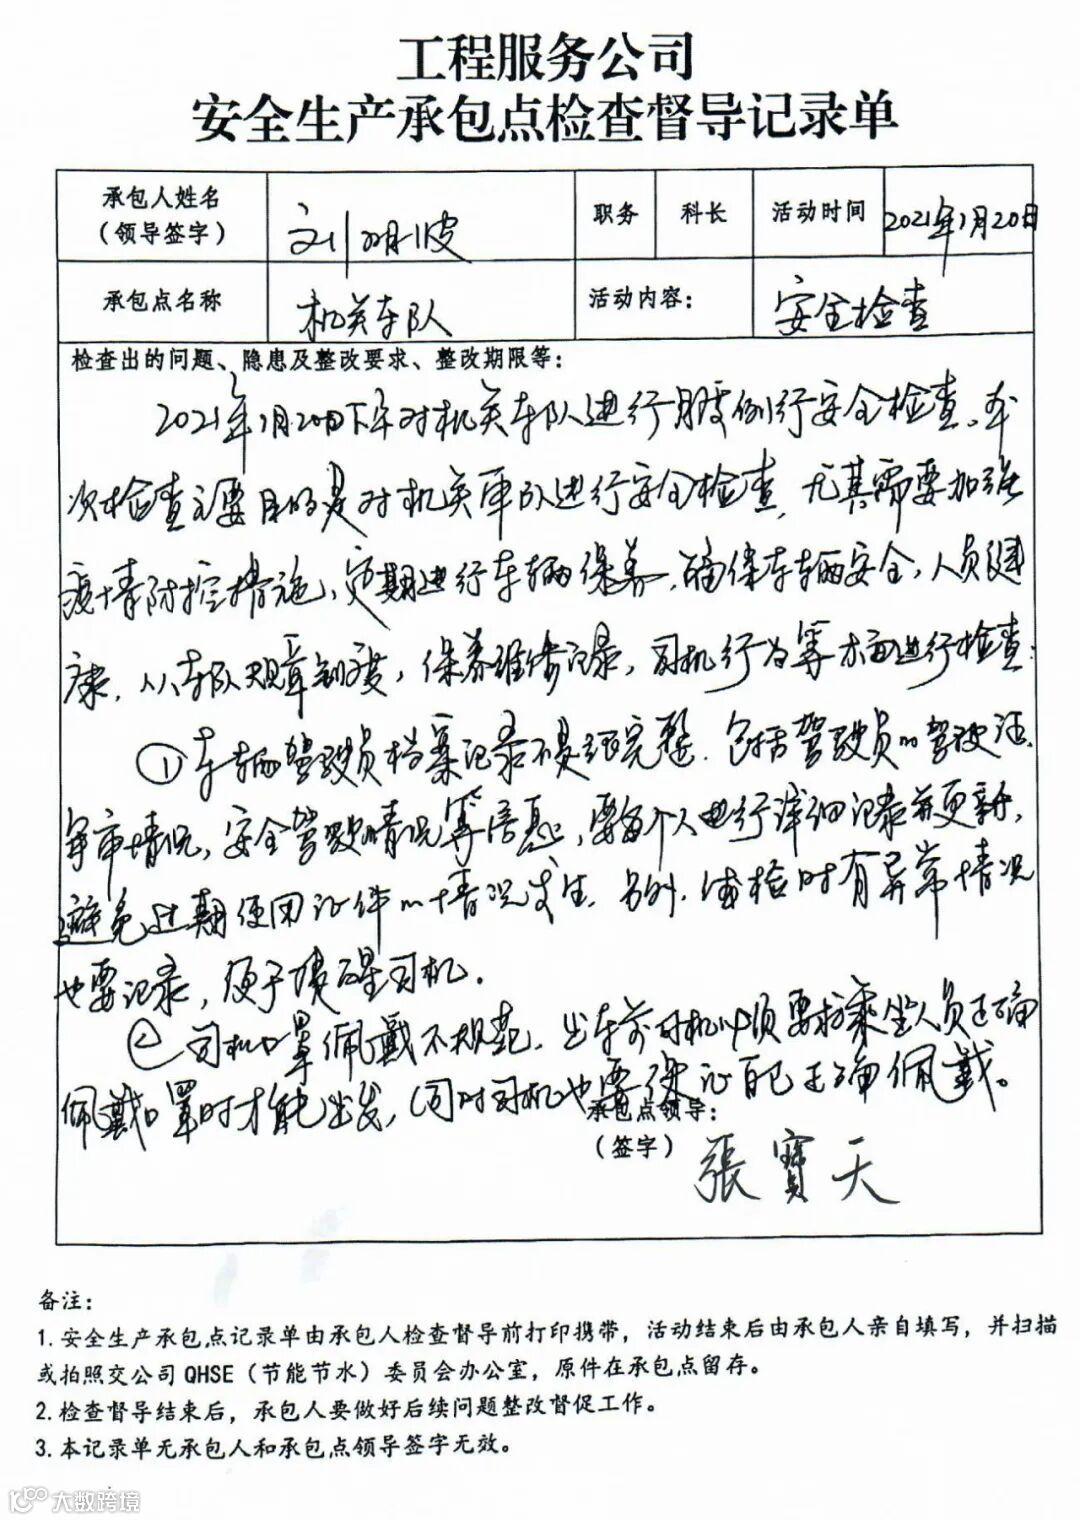 工程服务公司
安全生产承包点检查督导记录单
承包人姓名
（领导签字）
刘明波
职务
科长
活动时间
2021年1月20日
承包点名称
机关车队
活动内容：
安全检查
检查出的问题、隐患及整改要求、整改期限等：
2021年1月20日下午对机关车队进行例行安全检查。本
次检查主要目的是对机关车队进行安全检查，尤其需要加强
疫情防控措施、定期进行车辆保养，确保车辆安全，人员健
康，从车队规章制度，保养维修记录，司机行为等方面进行检查：
①车辆驾驶员档案记录不是很完整，包括驾驶员的驾驶证、
年审情况，安全驾驶情况等信息，要每个人进行详细记录并更新，
避免过期使用证件的情况发生。另外，体检时有异常情况
也要记录，便于提醒司机。
②司机口罩佩戴不规范，出车前司机必须要求乘坐人员正确
佩戴口罩时才能出发，同时司机也要保证自己正确佩戴。
承包点领导：
（签字）
張寶天
备注：
1.安全生产承包点记录单由承包人检查督导前打印携带，活动结束后由承包人亲自填写，并扫描
或拍照交公司QHSE（节能节水）委员会办公室，原件在承包点留存。
2.检查督导结束后，承包人要做好后续问题整改督促工作。
3.本记录单无承包人和承包点领导签字无效。
大数跨境